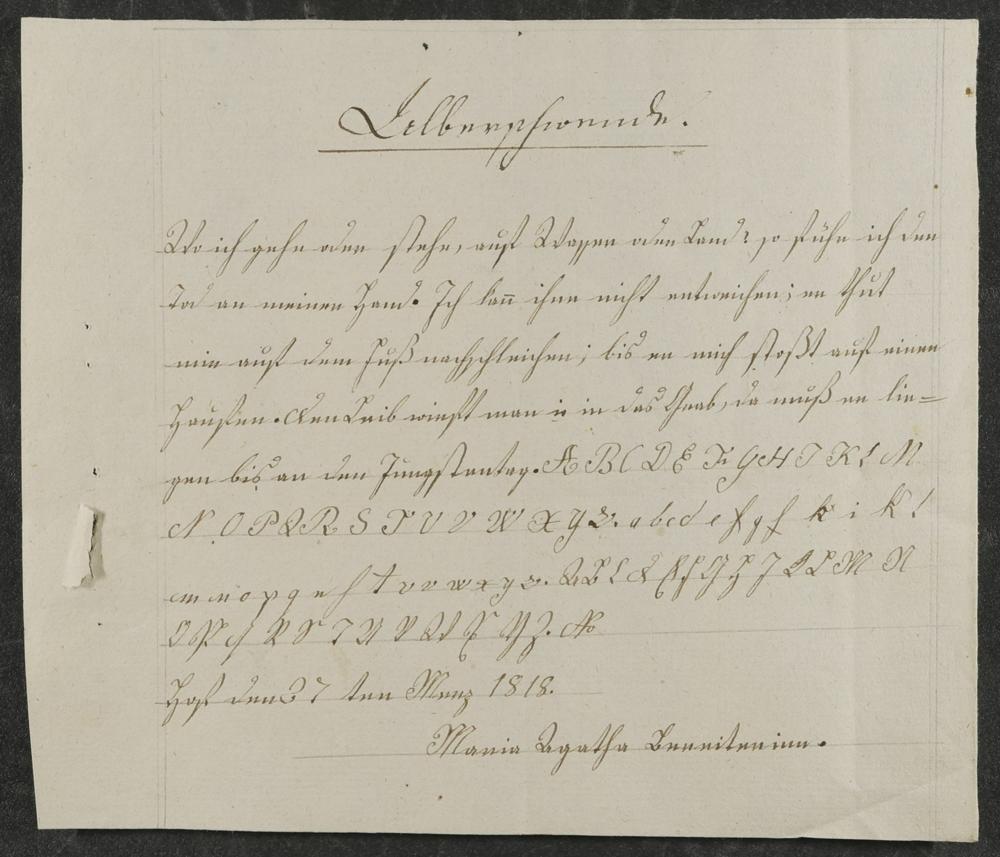 Alberschwende.
Wo ich gehe oder stehe, auf Wasser oder Land: so führ ich den
Tod an meiner Hand. Ich kañ ihm nicht entweichen; er thut
mir auf dem Fuß nachschleichen; bis er mich stoßt auf einen
Haufen. Den Leib wirft man in in das Grab, da muß er lie=
gen bis an den Jungstentag. A B C D E F G H I K L M
N O P Q R S T U V W X Y Z. a b c d e f g h k i k l
m n o p q r s t v v w x y z. A B C D E F G H J K L M N
O P Q R S T U V W X Y Z. No
Hof den 27 ten Merz 1818.
Maria Agatha Bereiterinn.